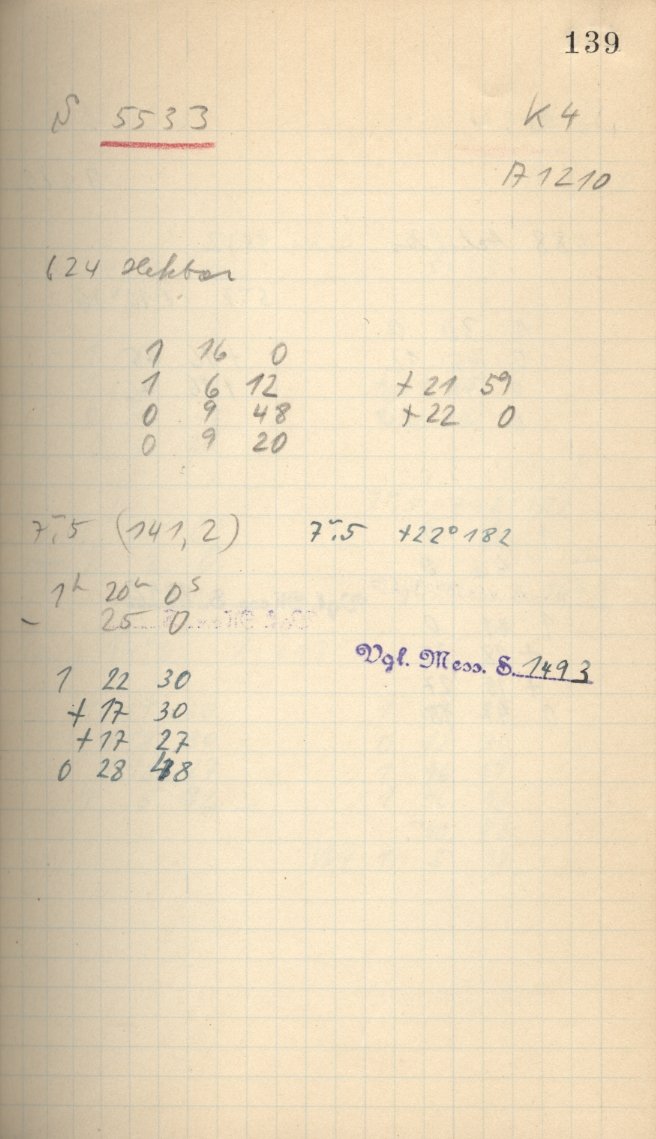 139
S 5533 K 4
A 1210
624 Hektor
1 16 0
1 6 12 +21 59
0 9 48 +22 0
0 9 20
7m,5 (141,2) 7m,5 +22° 182
1h 20m 0s
- 25 0
Vgl. Mess. S. 1493
1 22 30
+17 30
+17 27
0 28 48